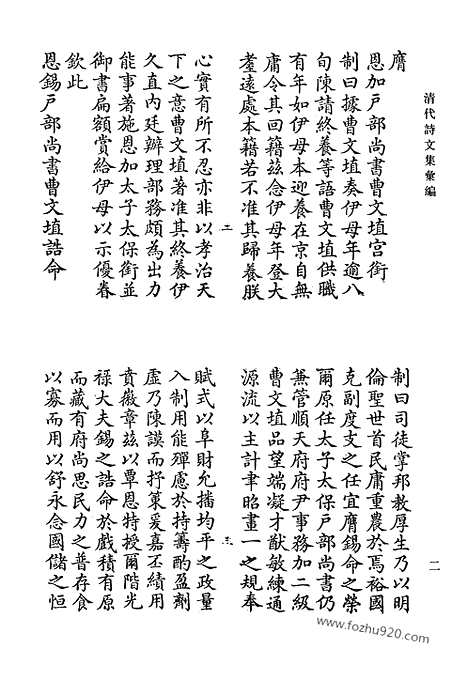 清代詩文集彙編
二
膺
恩加戶部尚書曹文埴宮銜
制曰據曹文埴奏伊母年逾八
旬陳請終養等語曹文埴供職
有年如伊母本迎養在京自無
庸令其回籍茲念伊母年登大
耋遠處本籍若不准其歸養朕
二
心實有所不忍亦非以孝治天
下之意曹文埴著准其終養伊
久直内廷辦理部務頗為出力
能事著施恩加太子太保銜並
御書扁額賞給伊母以示優眷
欽此
恩錫戶部尚書曹文埴誥命
制曰司徒掌邦教厚生乃以明
倫聖世首民庸重農於焉裕國
克副度支之任宜膺錫命之榮
爾原任太子太保戶部尚書仍
兼管順天府府尹事務加二級
曹文埴品望端凝才猷敏練通
源流以主計聿昭畫一之規奉
三
賦式以阜財允播均平之政量
入制用能殫慮於持籌酌盈劑
虛乃陳謨而抒策爰嘉丕績用
賁徽章茲以覃恩特授爾階光
祿大夫錫之誥命於戲積有原
而藏有府尚思民力之普存食
以寡而用以舒永念國儲之恒
www.fozhu920.com